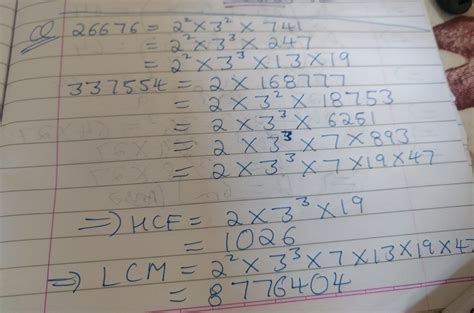 Q 26676 = 2² × 3² × 741
= 2² × 3³ × 247
= 2² × 3³ × 13 × 19
337554 = 2 × 168777
= 2 × 3² × 18753
= 2 × 3³ × 6251
= 2 × 3³ × 7 × 893
= 2 × 3³ × 7 × 19 × 47
=> HCF = 2 × 3³ × 19
= 1026
=> LCM = 2² × 3³ × 7 × 13 × 19 × 47
= 8776404